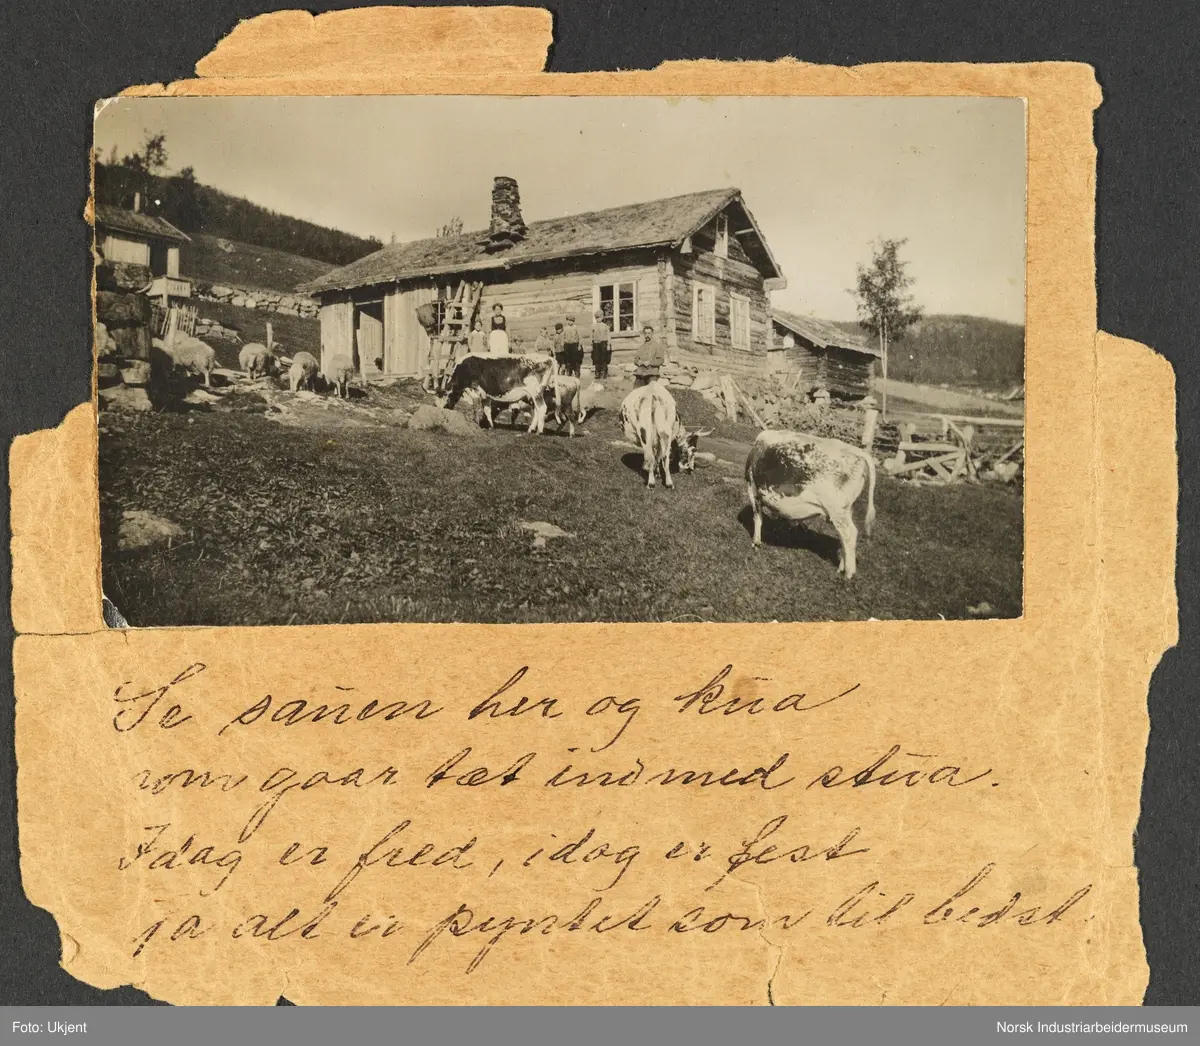 Se sauen her og kua
som gaar tæt ind med stua.
Idag er fred, idag er fest
ja alt er pyntet som til bedst.
Foto: Ukjent
Norsk Industriarbeidermuseum